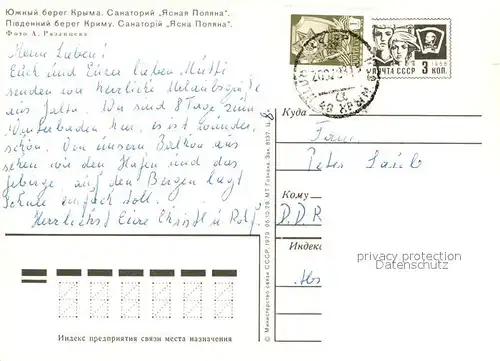 Южный берег Крыма. Санаторий „Ясная Поляна".
Південний берег Криму. Санаторій „Ясна Поляна".
Фото А. Рязанцева
Meine Lieben!
Euch und Eurer lieben Mutti
senden wir herrliche Urlaubsgrüße
aus Jalta. Wir sind 8 Tage zum
Winterbaden hier, es ist wunder-
schön. Von unserm Balkon aus
sehen wir den Hafen und das
Gebirge, auf den Bergen liegt
Schnee einfach toll.
Herzlichst Eure Christl u Rolf
ПОЧТА СССР 3 КОП.
1966
Куда
Fam.
Peter
Кому
D.D.R
Индекс
Abs
privacy protection
Datenschutz
Индекс предприятия связи места назначения
© Министерство связи СССР, 1979